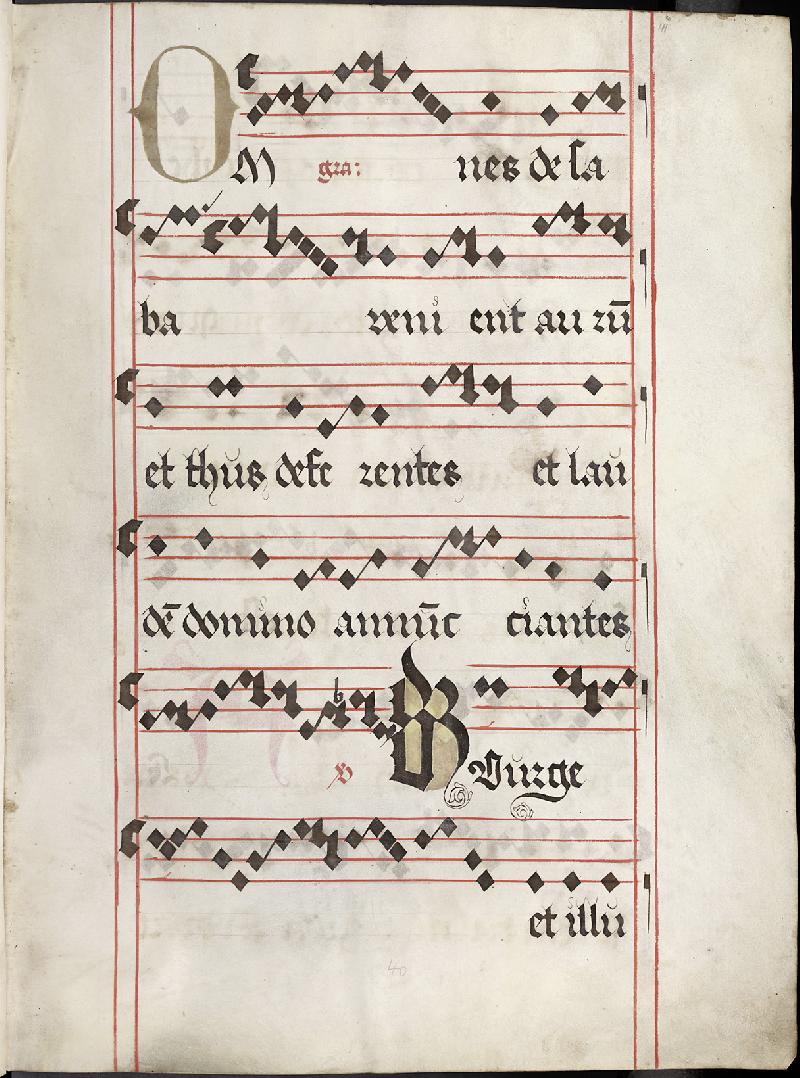 OM gra: nes de sa
ba veni ent au rū
et thus defe rentes et lau
dē domino annūc ciantes
℣ Surge
et illu
40